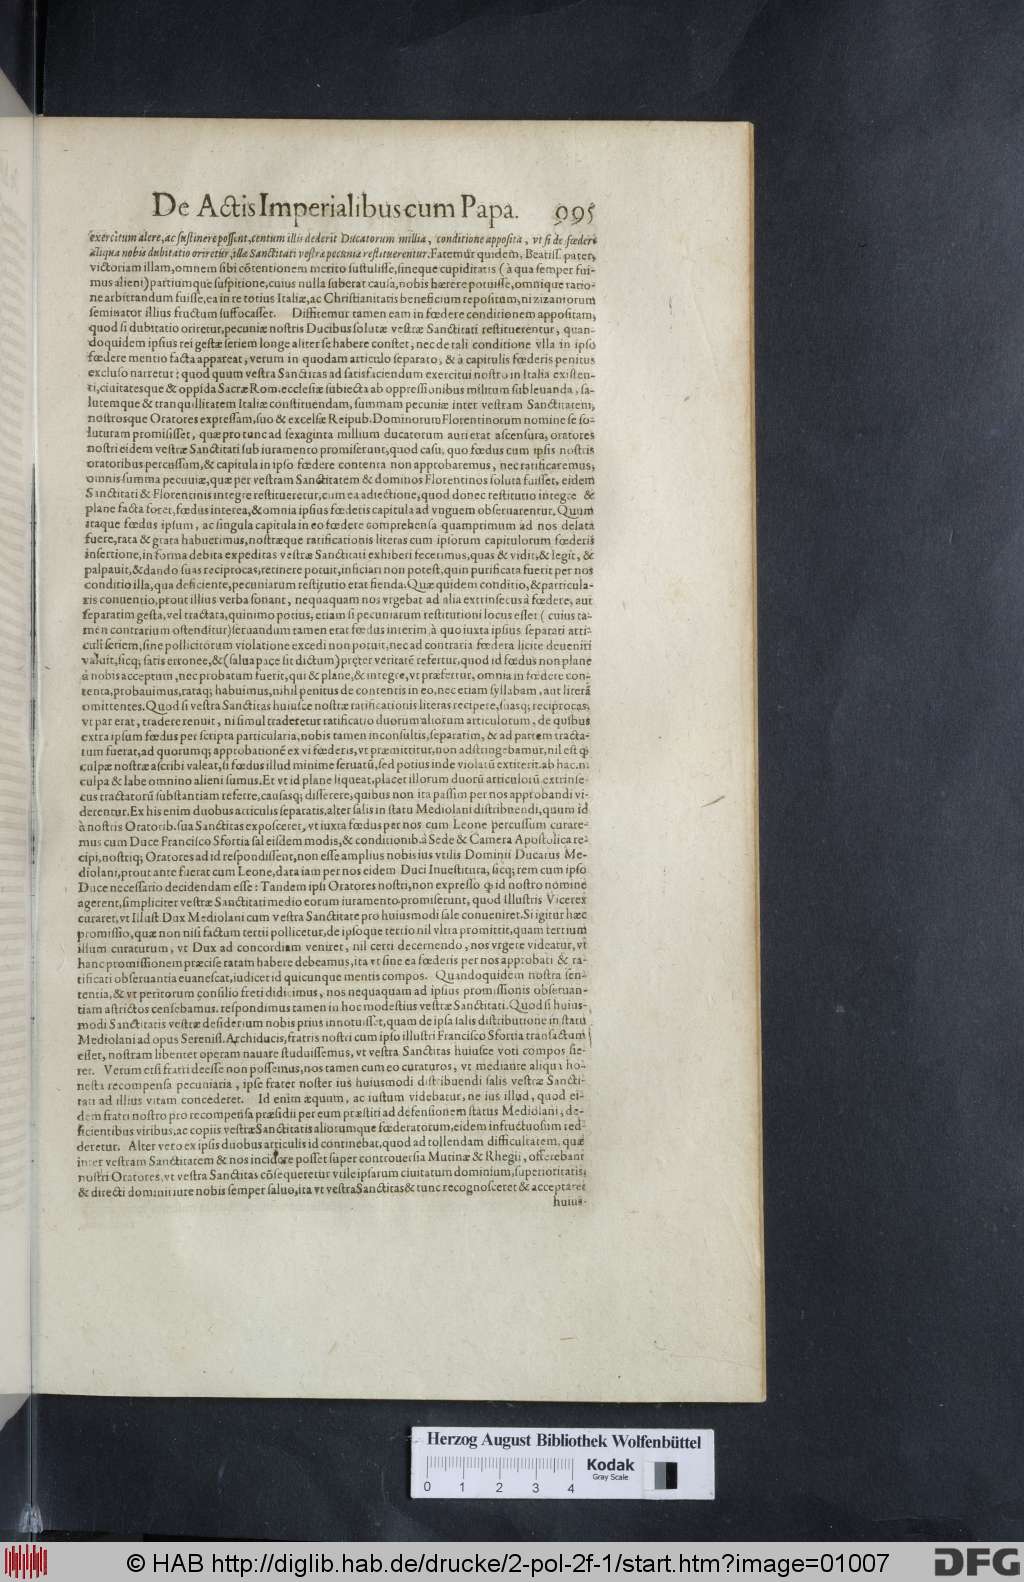 De Actis Imperialibus cum Papa. 995
exercitum alere, ac sustinere possent, centum illis dederit Ducatorum millia, conditione apposita, vt si de fœdere
aliqua nobis dubitatio oriretur, illæ Sanctitati vestræ pecuniæ restituerentur. Fatemur quidem, Beatiss. pater,
victoriam illam, omnem sibi cõtentionem merito sustulisse, sineque cupiditatis (à qua semper fui-
mus alieni) partiumque suspitione, cuius nulla suberat causa, nobis hærere potuisse, omnique ratio-
ne arbitrandum fuisse, ea in re totius Italiæ, ac Christianitatis beneficium repositum, ni zizaniorum
seminator illius fructum suffocasset. Diffitemur tamen eam in fœdere conditionem appositam,
quod si dubitatio oriretur, pecuniæ nostris Ducibus solutæ vestræ Sanctitati restituerentur, quan-
doquidem ipsius rei gestæ seriem longe aliter se habere constet, nec de tali conditione vlla in ipso
fœdere mentio facta appareat, verum in quodam articulo separato, & à capitulis fœderis penitus
excluso narretur: quod quum vestra Sanctitas ad satisfaciendum exercitui nostro in Italia existen-
ti, ciuitatesque & oppida Sacræ Rom. ecclesiæ subiecta ab oppressionibus militum subleuanda, sa-
lutemque & tranquillitatem Italiæ constituendam, summam pecuniæ inter vestram Sanctitatem,
nostrosque Oratores expressam, suo & excelsæ Reipub. Dominorum Florentinorum nomine se so-
luturam promisisset, quæ pro tunc ad sexaginta millium ducatorum auri erat ascensura, oratores
nostri eidem vestræ Sanctitati sub iuramento promiserunt, quod casu, quo fœdus cum ipsis nostris
oratoribus percussum, & capitula in ipso fœdere contenta non approbaremus, nec ratificaremus,
omnis summa pecuniæ, quæ per vestram Sanctitatem & dominos Florentinos soluta fuisset, eidem
Sanctitati & Florentinis integre restitueretur, cum ea adiectione, quod donec restitutio integre &
plane facta foret, fœdus interea, & omnia ipsius fœderis capitula ad vnguem obseruarentur. Quum
itaque fœdus ipsum, ac singula capitula in eo fœdere comprehensa quamprimum ad nos delata
fuere, rata & grata habuerimus, nostræque ratificationis literas cum ipsorum capitulorum fœderis
insertione, in forma debita expeditas vestræ Sanctitati exhiberi fecerimus, quas & vidit, & legit, &
palpauit, & dando suas reciprocas, retinere potuit, inficiari non potest, quin purificata fuerit per nos
conditio illa, qua deficiente, pecuniarum restitutio erat fienda. Quæ quidem conditio, & particula-
ris conuentio, prout illius verba sonant, nequaquam nos vrgebat ad alia extrinsecus à fœdere, aut
separatim gesta, vel tractata, quinimo potius, etiam si pecuniarum restitutioni locus esset (cuius ta-
men contrarium ostenditur) seruandum tamen erat fœdus interim, à quo iuxta ipsius separati arti-
culi seriem, sine pollicitorum violatione excedi non potuit, nec ad contraria fœdera licite deueniri
valuit, sicq; satis erronee, & (salua pace sit dictum) preter veritatē refertur, quod id fœdus non plane
à nobis acceptum, nec probatum fuerit, qui & plane, & integre, vt præfertur, omnia in fœdere con-
tenta, probauimus, rataq; habuimus, nihil penitus de contentis in eo, nec etiam syllabam, aut literā
omittentes. Quod si vestra Sanctitas huiusce nostræ ratificationis literas recipere, suasq; reciprocas,
vt par erat, tradere renuit, ni simul traderetur ratificatio duorum aliorum articulorum, de quibus
extra ipsum fœdus per scripta particularia, nobis tamen inconsultis, separatim, & ad partem tracta-
tum fuerat, ad quorumq; approbationē ex vi fœderis, vt præmittitur, non adstringebamur, nil est q̃
culpæ nostræ ascribi valeat, si fœdus illud minime seruatū, sed potius inde violatū extiterit. ab hac.n.
culpa & labe omnino alieni sumus. Et vt id plane liqueat, placet illorum duorū articulorū extrinse-
cus tractatorū substantiam referre, causasq; disserere, quibus non ita passim per nos approbandi vi-
derentur. Ex his enim duobus articulis separatis, alter salis in statu Mediolani distribuendi, quum id
à nostris Oratorib. sua Sanctitas exposceret, vt iuxta fœdus per nos cum Leone percussum curare-
mus cum Duce Francisco Sfortia sal eisdem modis, & conditionib. à Sede & Camera Apostolica re-
cipi, nostriq; Oratores ad id respondissent, non esse amplius nobis ius vtilis Dominii Ducatus Me-
diolani, prout ante fuerat cum Leone, data iam per nos eidem Duci Inuestitura, sicq; rem cum ipso
Duce necessario decidendam esse: Tandem ipsi Oratores nostri, non expresso q̃ id nostro nomine
agerent, simpliciter vestræ Sanctitati medio eorum iuramento promiserunt, quod Illustris Vicerex
curaret, vt Illust. Dux Mediolani cum vestra Sanctitate pro huiusmodi sale conueniret. Si igitur hæc
promissio, quæ non nisi factum tertii pollicetur, de ipsoque tertio nil vltra promittit, quam tertium
illum curaturum, vt Dux ad concordiam veniret, nil certi decernendo, nos vrgere videatur, vt
hanc promissionem præcise ratam habere debeamus, ita vt sine ea fœderis per nos approbati & ra-
tificati obseruantia euanescat, iudicet id quicunque mentis compos. Quandoquidem nostra sen-
tentia, & vt peritorum consilio freti didicimus, nos nequaquam ad ipsius promissionis obseruan-
tiam astrictos censebamus. respondimus tamen in hoc modestius vestræ Sanctitati. Quod si huius-
modi Sanctitatis vestræ desiderium nobis prius innotuisset, quam de ipsa salis distributione in statu
Mediolani ad opus Sereniss. Archiducis, fratris nostri cum ipso illustri Francisco Sfortia transactum
esset, nostram libenter operam nauare studuissemus, vt vestra Sanctitas huiusce voti compos fie-
ret. Verum etsi fratri deesse non possemus, nos tamen cum eo curaturos, vt mediante aliqua ho-
nesta recompensa pecuniaria, ipse frater noster ius huiusmodi distribuendi salis vestræ Sancti-
tati ad illius vitam concederet. Id enim æquum, ac iustum videbatur, ne ius illud, quod ei-
dem fratri nostro pro recompensa præsidii per eum præstiti ad defensionem status Mediolani, de-
ficientibus viribus, ac copiis vestræ Sanctitatis aliorumque fœderatorum, eidem infructuosum red-
deretur. Alter vero ex ipsis duobus articulis id continebat, quod ad tollendam difficultatem, quæ
inter vestram Sanctitatem & nos incidere posset super controuersia Mutinæ & Rhegii, offerebant
nostri Oratores, vt vestra Sanctitas cõsequeretur vtile ipsarum ciuitatum dominium, superioritatis,
& directi dominii iure nobis semper saluo, ita vt vestra Sanctitas & tunc recognosceret & acceptaret
huius-
Herzog August Bibliothek Wolfenbüttel
Kodak
Gray Scale
0 1 2 3 4
© HAB http://diglib.hab.de/drucke/2-pol-2f-1/start.htm?image=01007
DFG